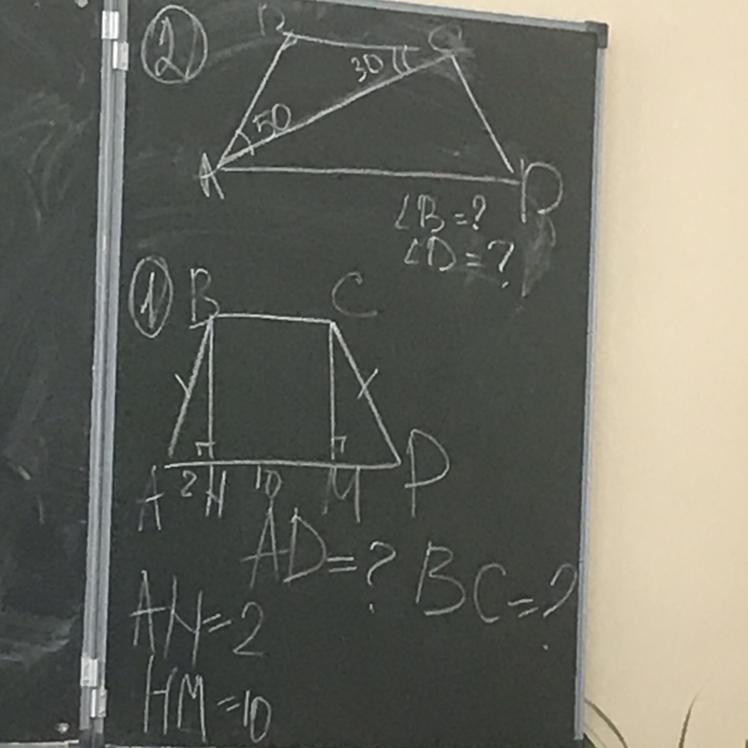 2
B C
30
50
A D
∠B=?
∠D=?
1 B C
A 2 H 10 M D
AD=? BC=?
AH=2
HM=10